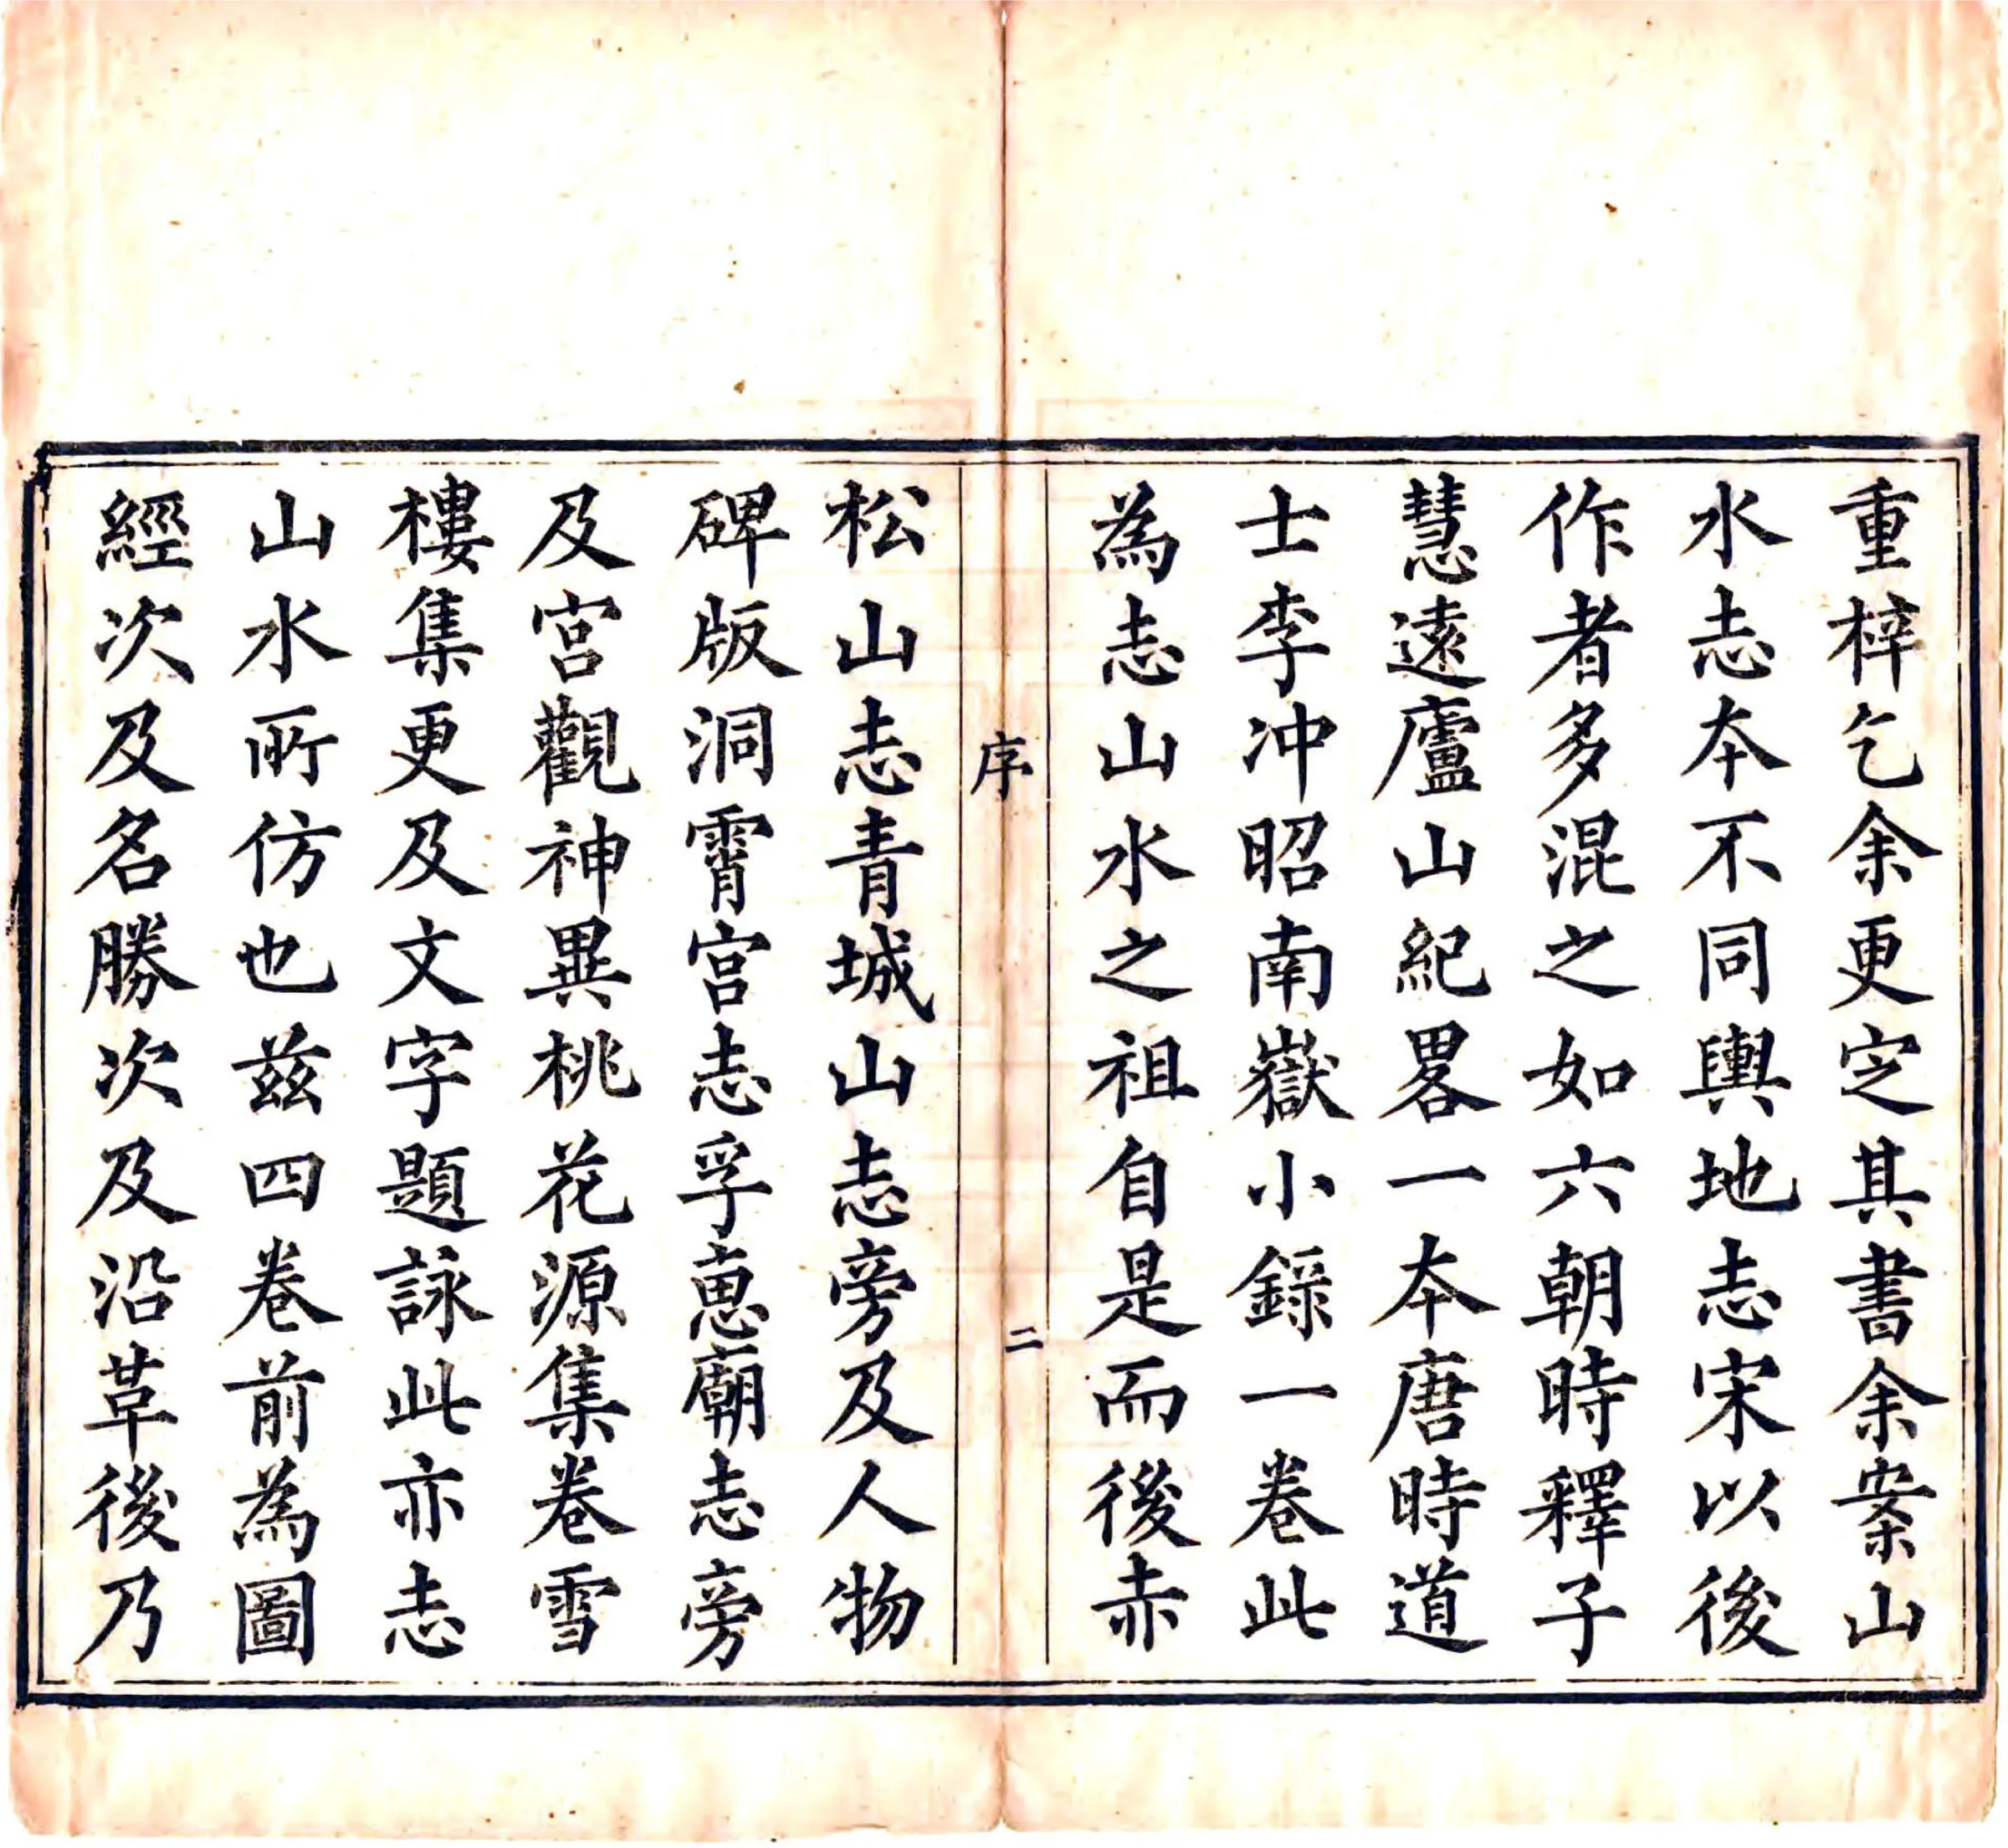 重梓乞余更定其書余案山
水志本不同輿地志宋以後
作者多混之如六朝時釋子
慧遠廬山紀畧一本唐時道
士李冲昭南嶽小錄一卷此
為志山水之祖自是而後赤
序 二
松山志青城山志旁及人物
碑版洞霄宮志孚惠廟志旁
及宮觀神異桃花源集卷雪
樓集更及文字題詠此亦志
山水所仿也茲四卷前為圖
經次及名勝次及沿革後乃